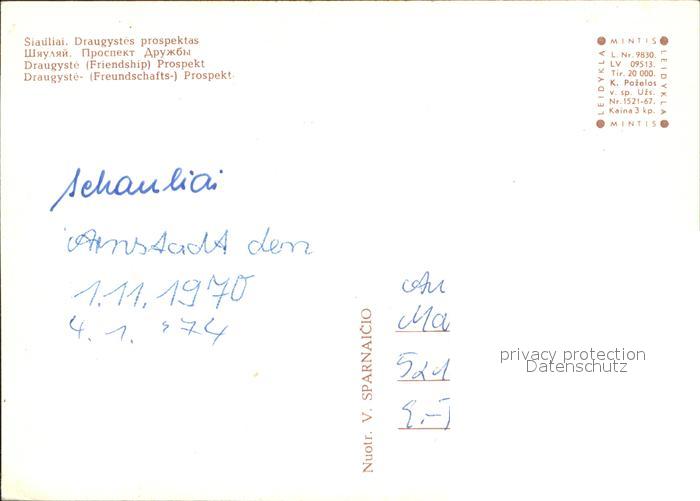 Šiauliai. Draugystės prospektas
Шяуляй. Проспект Дружбы
Draugystė (Friendship) Prospekt
Draugystė- (Freundschafts-) Prospekt
MINTIS
LEIDYKLA
L. Nr. 9830.
LV 09513.
Tir. 20 000.
K. Poželos
v. sp. Užs.
Nr. 1521-67.
Kaina 3 kp.
LEIDYKLA
MINTIS
Schauliai
Arnstadt den
1.11.1970
4. 1. '74
An
Ma
521
Nuotr. V. SPARNAIČIO
privacy protection
Datenschutz